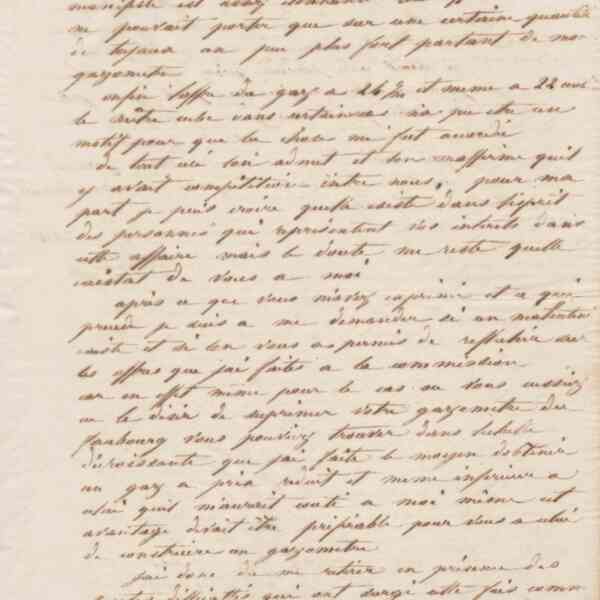 manifeste est assez
ne pouvait porter que sur une certaine quantité
de tuyaux un peu plus fort partant de mon
gazometre
enfin l'offre du gaz a 26 et meme a 22
le mètre cube dans certains cas n'a pu etre un
motif pour que la chose me fut accordé
de tout coté l'on admet et l'on m'affirme qu'il
y avait compétition entre nous, pour ma
part je puis croire qu'elle existe dans l'esprit
des personnes que représentent vos interets dans
cette affaire mais le doute me reste qu'elle
existat de vous a moi
après ce que vous m'avez exprimé et ce qui
precede je suis a me demander si un malentendu
existe et si l'on vous a permis de reflechir sur
les offres que j'ai faites a la commission
car en effet même pour le cas ou vous aussiez
eu le désir de suprimer votre gazometre du
faubourg vous pouviez trouver dans l'echelle
décroissante que j'ai faite le moyen d'obtenir
un gaz a prix réduit et meme inferieur a
celui qu'il m'aurait couté a moi même cet
avantage devait être préférable pour vous a celui
de construire un gazometre
j'ai donc du me retirer en présence des
difficultés qui ont surgi cette fois comme